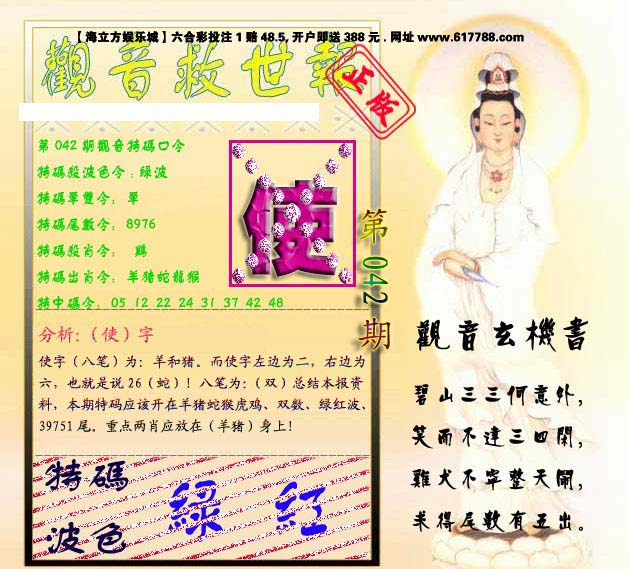 【海立方娱乐城】六合彩投注1赔48.5,开户即送388元.网址www.617788.com
觀音救世報
正版
第042期觀音特碼口令
特碼殺波色令:綠波
特碼單雙令: 單
特碼尾數令: 8976
特碼殺肖令: 鷄
特碼出肖令: 羊猪蛇龍猴
特中碼令: 05 12 22 24 31 37 42 48
使
第042期
分析:(使)字
使字(八笔)为:羊和猪。而使字左边为二,右边为
六,也就是说26(蛇)!八笔为:(双)总结本报资
料,本期特码应该开在羊猪蛇猴虎鸡、双数、绿红波、
39751尾。重点两肖应放在(羊猪)身上!
特碼
波色
綠 紅
觀音玄機書
碧山三三何意外,
笑而不達三四閑,
雞犬不寧整天鬧,
來得尾數有五出。